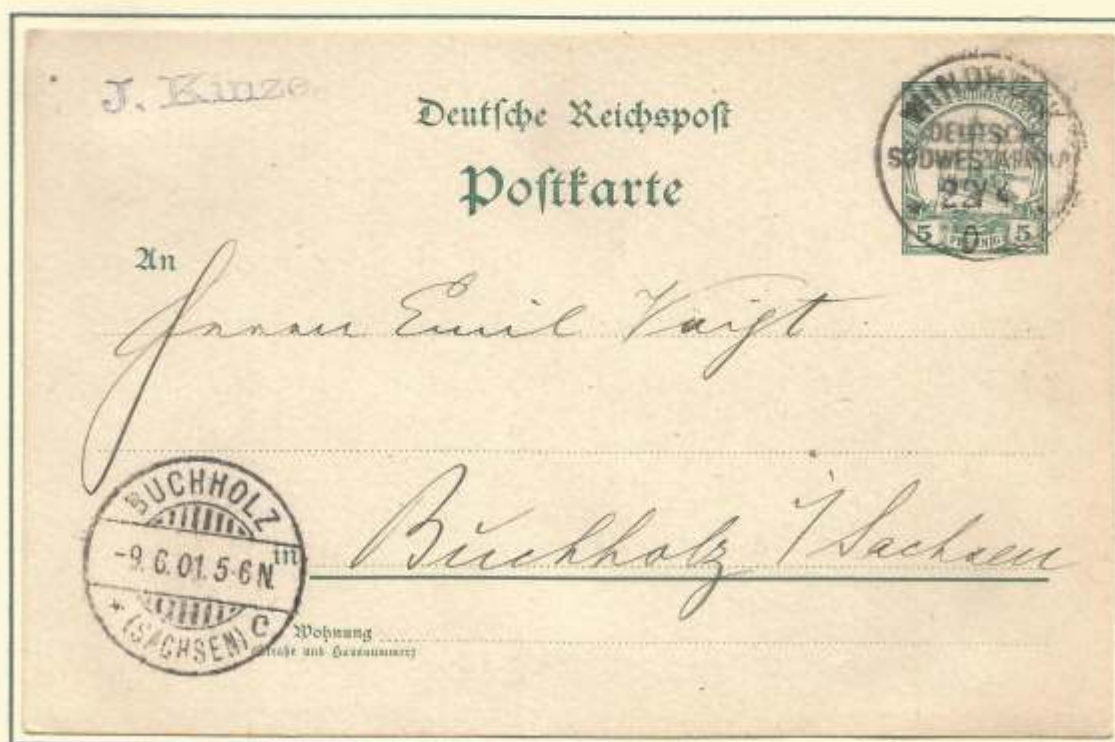 J. Kunze
Deutsche Reichspost
Postkarte
WINDHOEK
DEUTSCH
SÜDWESTAFRIKA
22/4
5 PFENNIG 5
An
Herrn Emil Voigt
BUCHHOLZ
-9.6.01.5-6N.
(SACHSEN) C
in
Buchholz i/Sachsen
Wohnung
(Straße und Hausnummer)